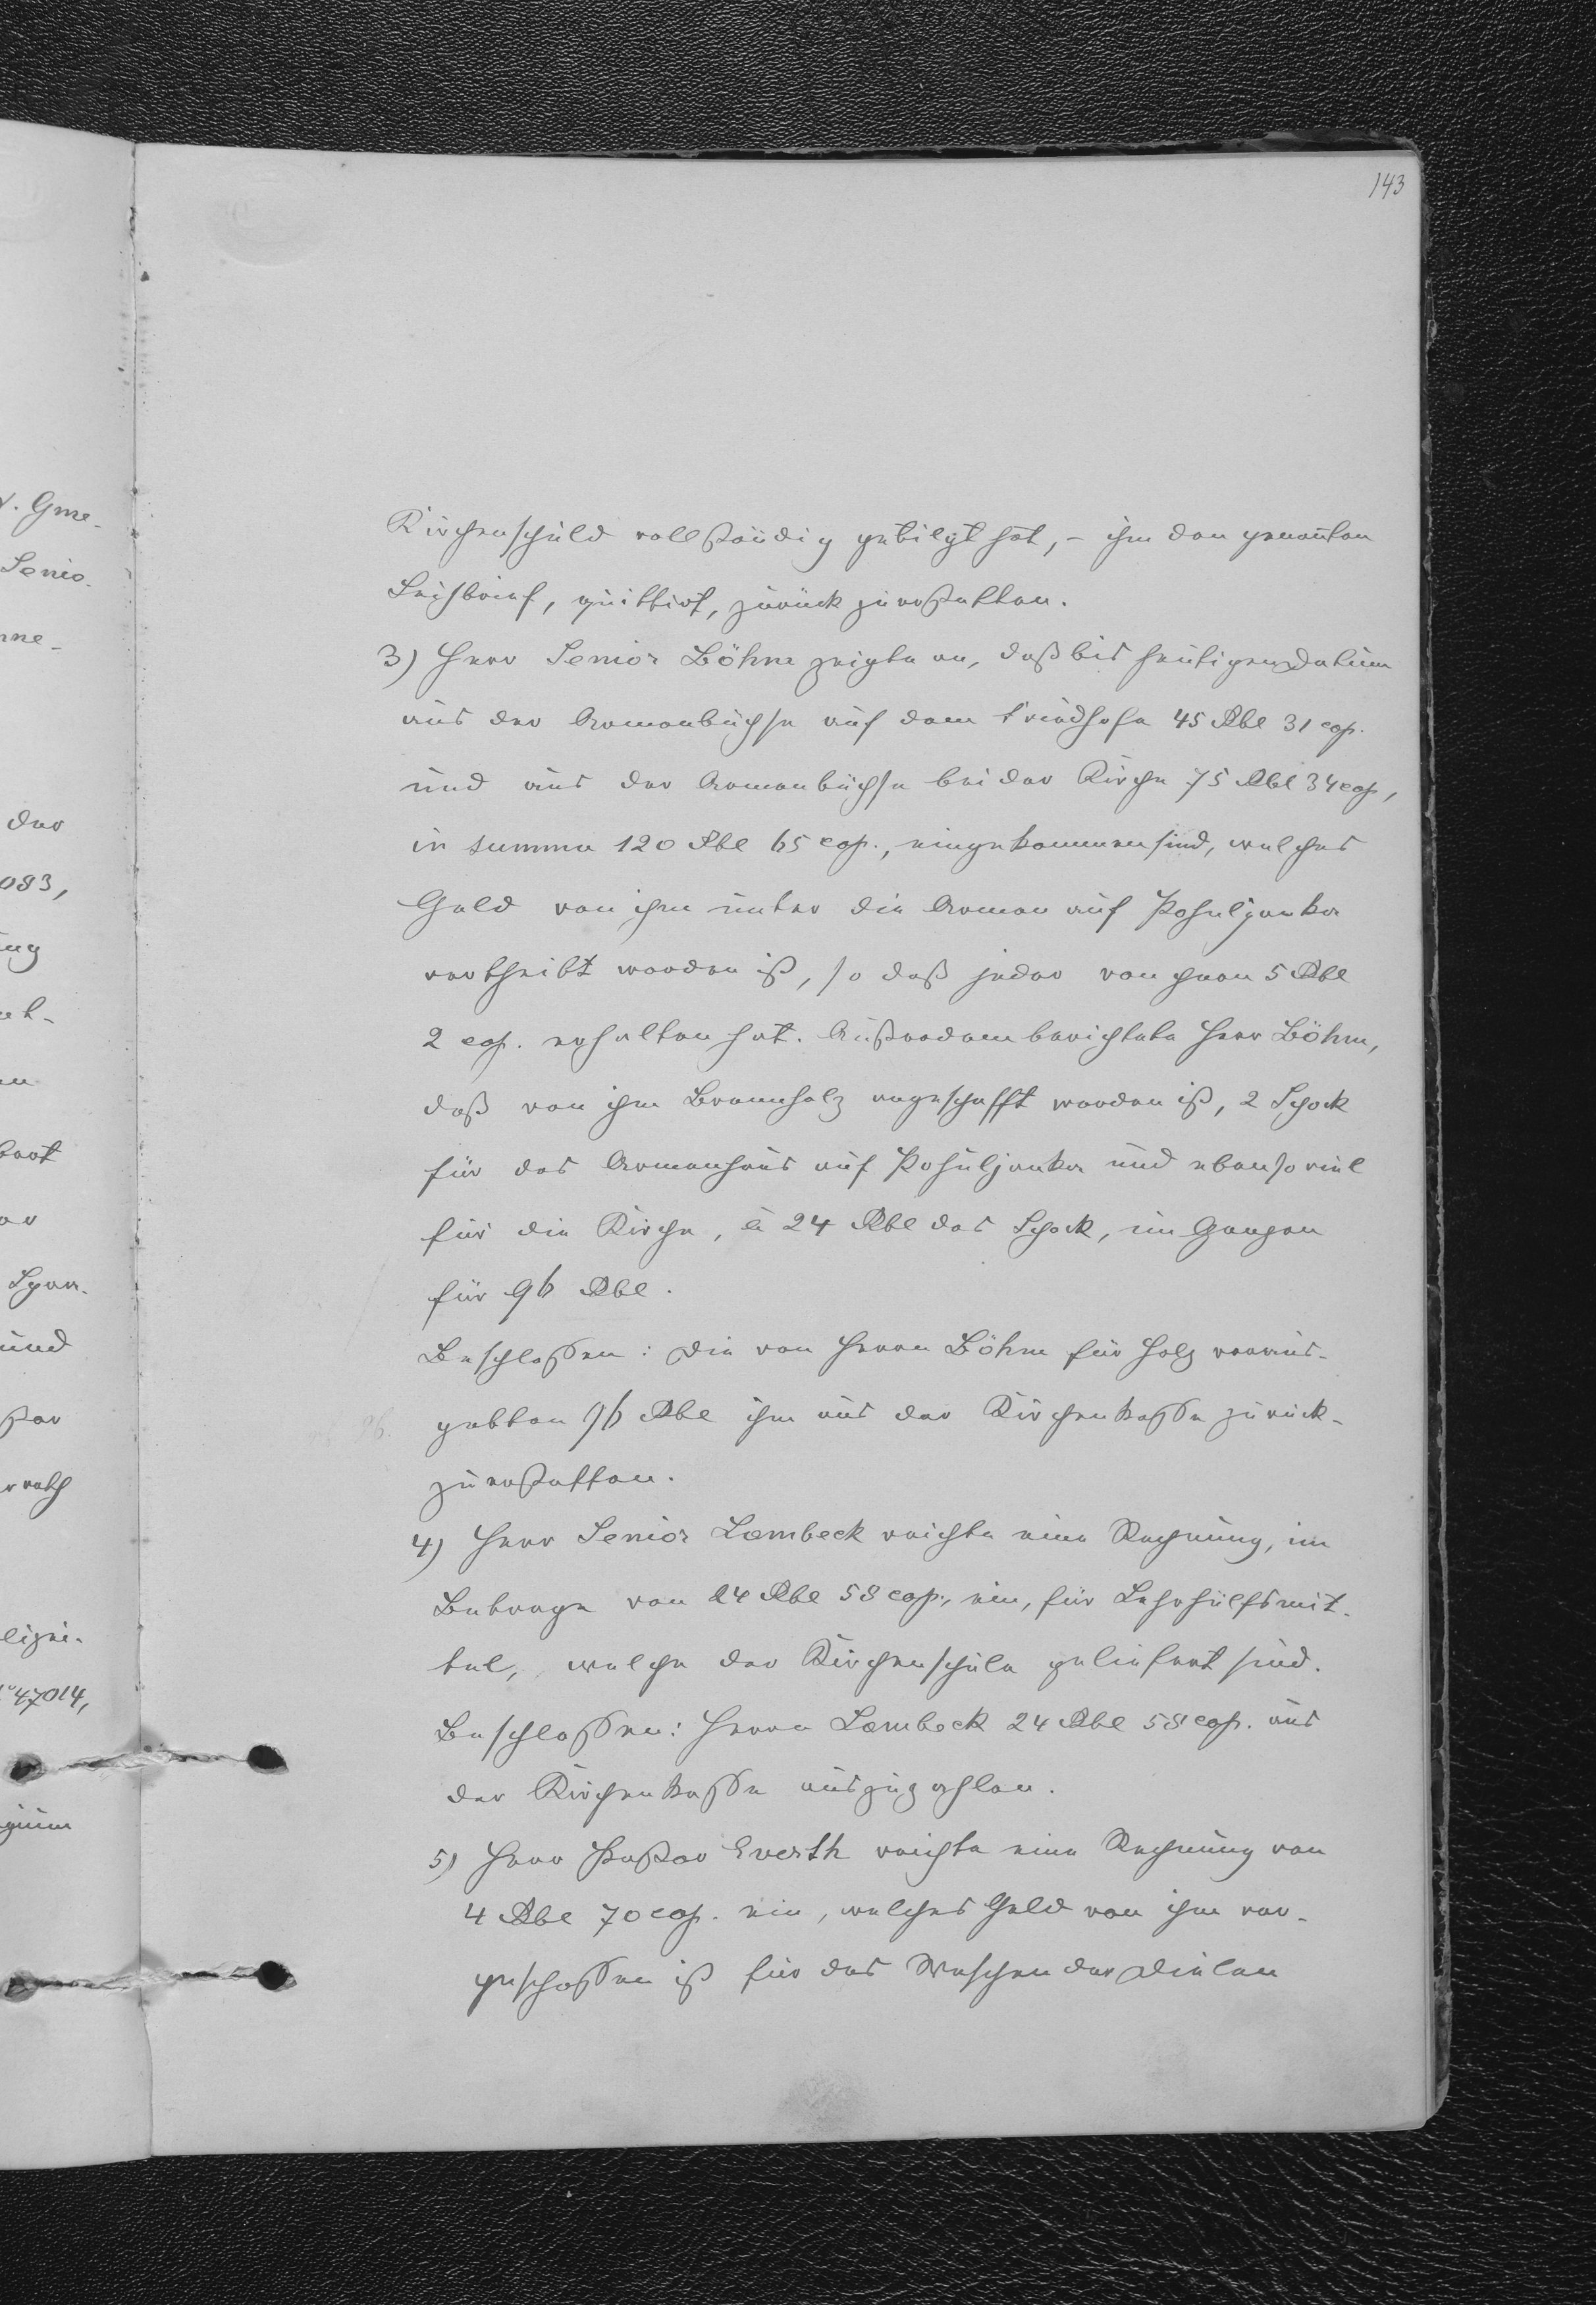 143
Kirchenschuld vollständig getilgt hat, – ihm den genannten
Leihbrief, quittirt, zurück zu erstatten.
3) Herr Senior Böhm zeigte an, daß bis heutigen Datum
aus der Armenbüchse auf dem Friedhofe 45 Rbl 31 cop.
und aus der Armenbüchse bei der Kirche 75 Rbl 34 cop,
in summa 120 Rbl 65 cop., eingekommen sind, welches
Geld von ihm unter die Armen auf Pohuljanka
vertheilt worden ist, so daß jeder von ihnen 5 Rbl
2 cop. erhalten hat. Außerdem berichtete Herr Böhm,
daß von ihm Brennholz angeschafft worden ist, 2 Schock
für das Armenhaus auf Pohuljanka und ebensoviel
für die Kirche, à 24 Rbl das Schock, im Ganzen
für 96 Rbl.
Beschloßen: Die von Herrn Böhm für Holz veraus-
gabten 96 Rbl ihm aus der Kirchenkaße zurück-
zuerstatten.
4) Herr Senior Lembeck reichte eine Rechnung, im
Betrage von 24 Rbl 58 cop., ein, für Lehrhülfsmit-
tel, welche der Kirchenschule geliefert sind.
Beschloßen: Herrn Lembeck 24 Rbl 58 cop. aus
der Kirchenkaße auszuzahlen.
5) Herr Pastor Everth reichte eine Rechnung von
4 Rbl 70 cop. ein, welches Geld von ihm vor-
geschoßen ist für das Waschen der Dielen